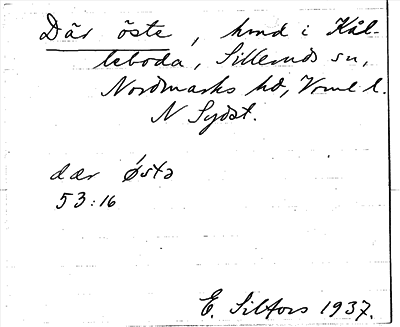 Där öste, hmd i Kål-
leboda, Silleruds sn,
Nordmarks hd, Vrml l.
N Sydst.
dær östa
53:16
E. Silfors 1937.